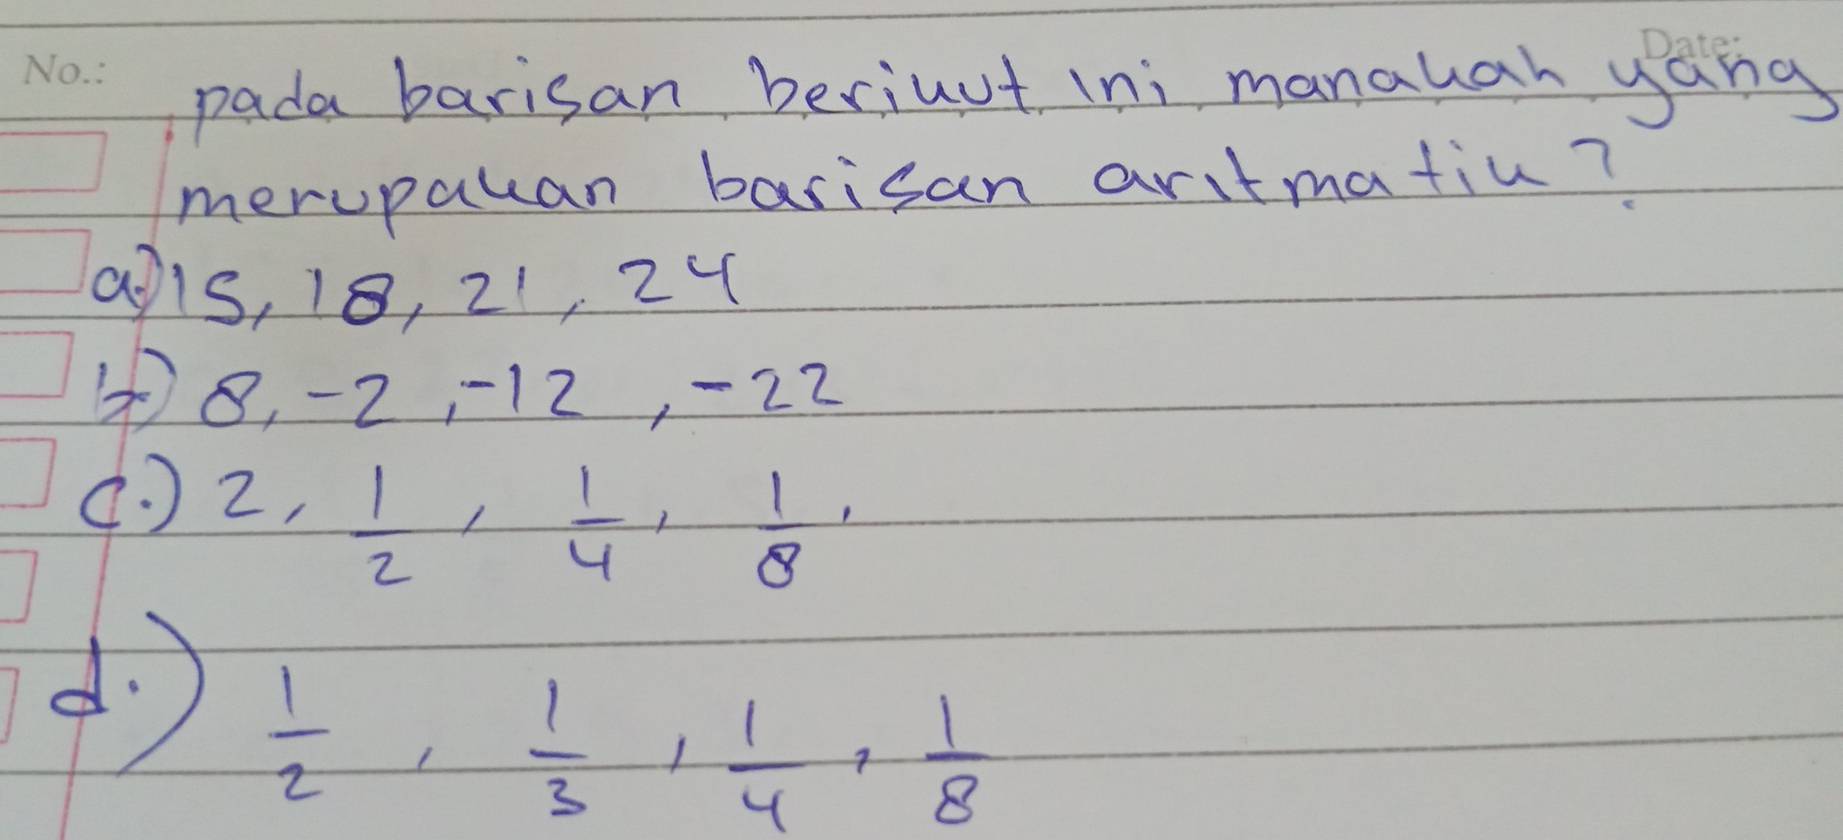 No.: Date:
pada barisan berikut ini manakah yang
merupakan barisan aritmatik?
a.) 15, 18, 21, 24
b.) 8, -2, -12, -22
c.) 2, 1/2, 1/4, 1/8,
d.) 1/2, 1/3, 1/4, 1/8